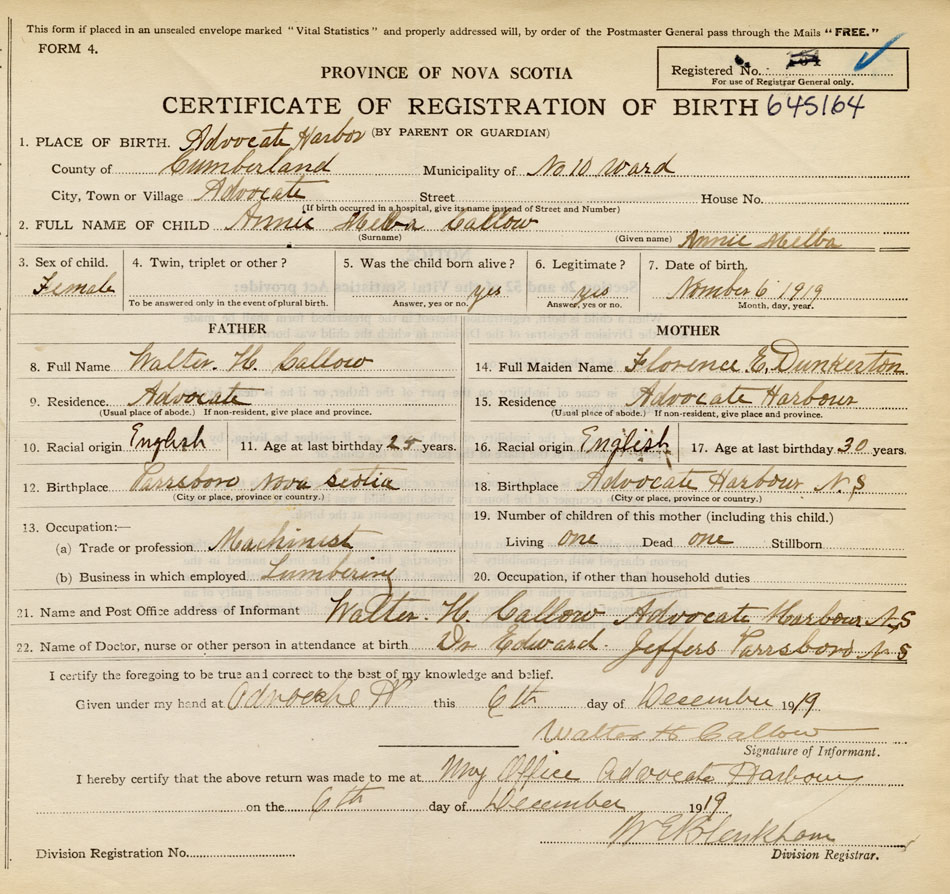 This form if placed in an unsealed envelope marked "Vital Statistics" and properly addressed will, by order of the Postmaster General pass through the Mails "FREE."
FORM 4.
Registered No.
For use of Registrar General only.
PROVINCE OF NOVA SCOTIA
CERTIFICATE OF REGISTRATION OF BIRTH 645164
(BY PARENT OR GUARDIAN)
1. PLACE OF BIRTH. Advocate Harbor
County of Cumberland Municipality of No 10 Ward
City, Town or Village Advocate Street House No.
(If birth occurred in a hospital, give its name instead of Street and Number)
2. FULL NAME OF CHILD Annie Melba Callow Annie Melba
(Surname) (Given name)
3. Sex of child. 4. Twin, triplet or other? 5. Was the child born alive? 6. Legitimate? 7. Date of birth.
Female yes yes Nomber 6 1919
To be answered only in the event of plural birth. Answer, yes or no. Answer, yes or no. Month, day, year.
FATHER MOTHER
8. Full Name Walter. H. Callow 14. Full Maiden Name Florence E. Dunkerton
9. Residence. Advocate 15. Residence Advocate Harbour
(Usual place of abode.) If non-resident, give place and province. (Usual place of abode.) If non-resident, give place and province.
10. Racial origin English 11. Age at last birthday 25 years. 16. Racial origin English 17. Age at last birthday 30 years.
12. Birthplace Parrsboro Nova Scotia 18. Birthplace Advocate Harbour N.S
(City or place, province or country.) (City or place, province or country.)
13. Occupation:— 19. Number of children of this mother (including this child.)
(a) Trade or profession Machinist Living one Dead one Stillborn
(b) Business in which employed Lumbering 20. Occupation, if other than household duties
21. Name and Post Office address of Informant Walter. H. Callow Advocate Harbour N.S
22. Name of Doctor, nurse or other person in attendance at birth Dr Edward. Jeffers Parrsboro N S
I certify the foregoing to be true and correct to the best of my knowledge and belief.
Given under my hand at Advocate H this 6th day of December 1919
Walter H Callow
Signature of Informant.
I hereby certify that the above return was made to me at My Office Advocate Harbour
on the 6th day of December 1919
Division Registration No. Division Registrar.